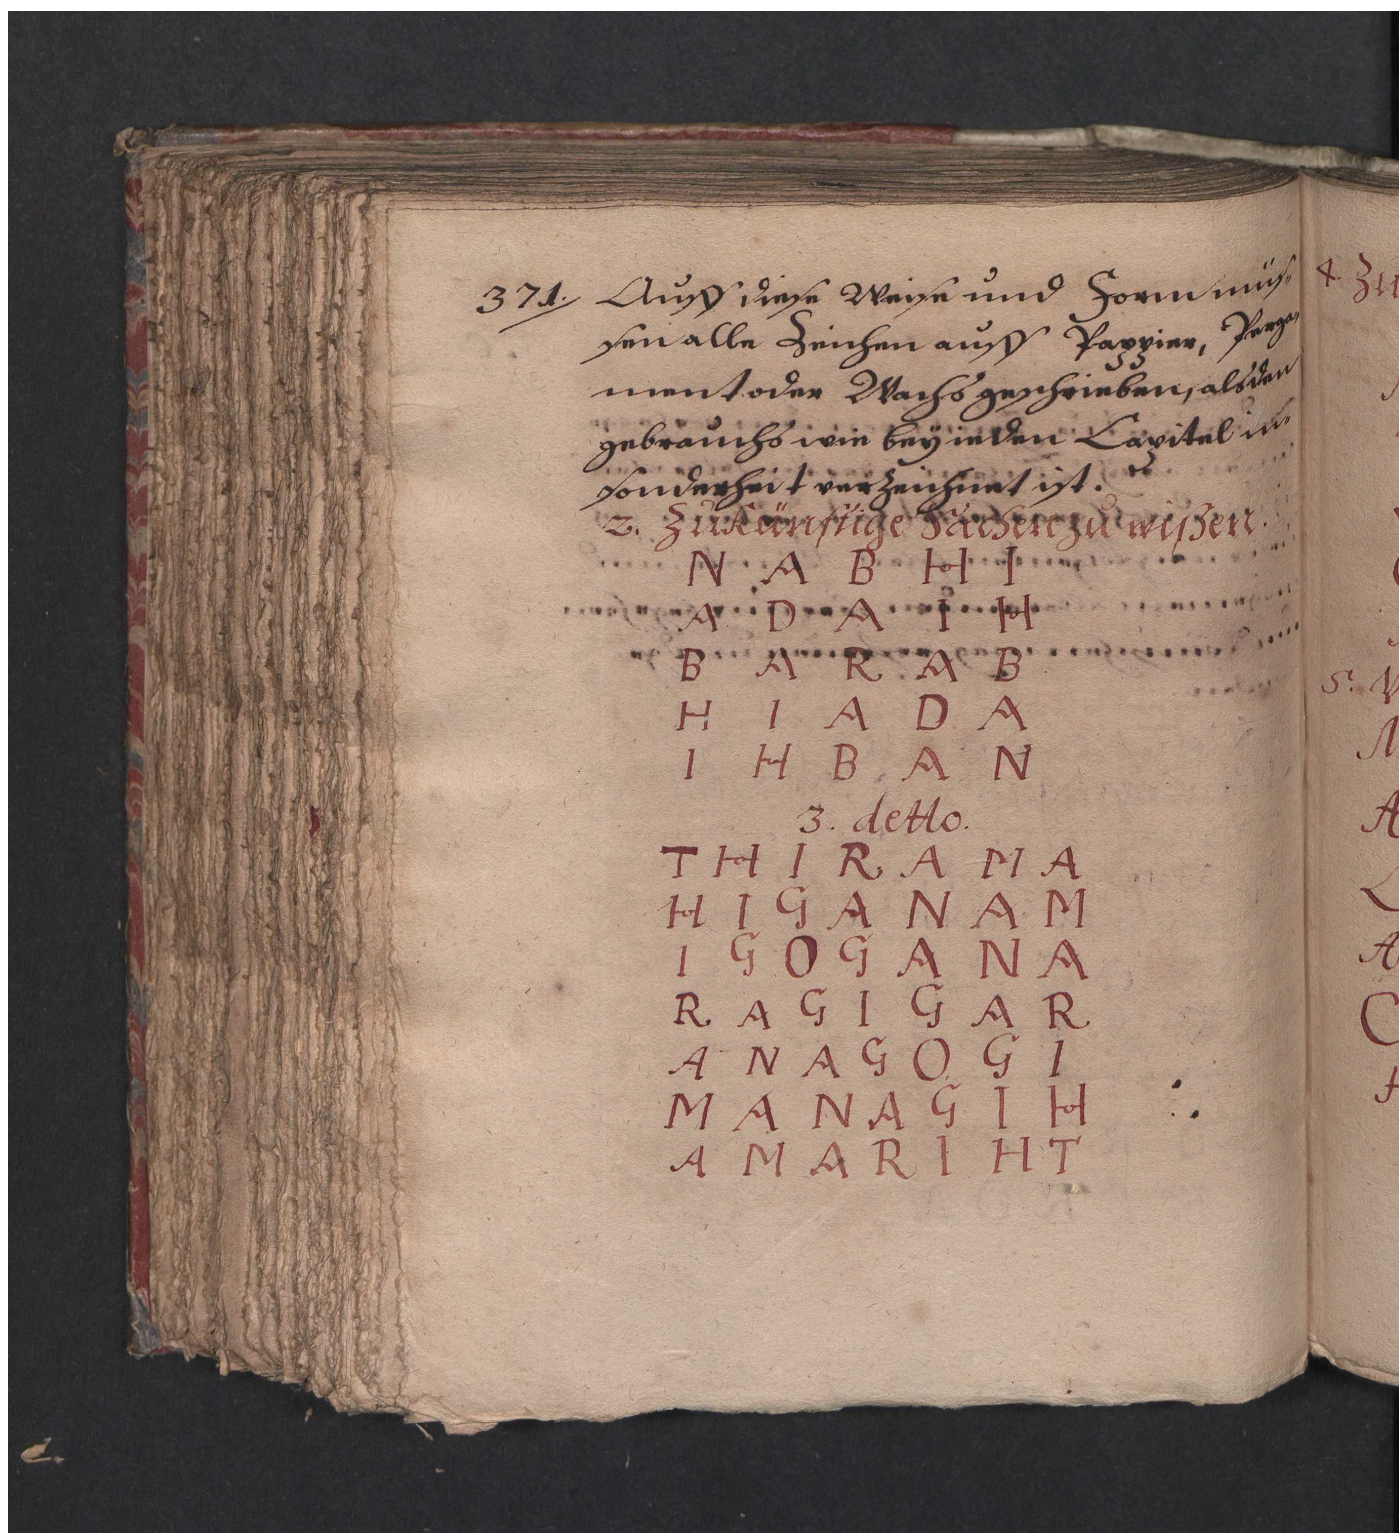 371. Auff diese Weise und Form müs-
sen alle Zeichen auff Pappier, Perga,
ment oder Wachs geschrieben, als den
gebrauchs wie bey ieden Capitel in-
sonderheit verzeichnet ist.
2. Zukünfftige Sachen zu wißen.
N A B H I
A D A I H
B A R A B
H I A D A
I H B A N
3. detto.
T H I R A M A
H I G A N A M
I G O G A N A
R A G I G A R
A N A G O G I
M A N A G I H
A M A R I H T
4. Zu
5.
A
A